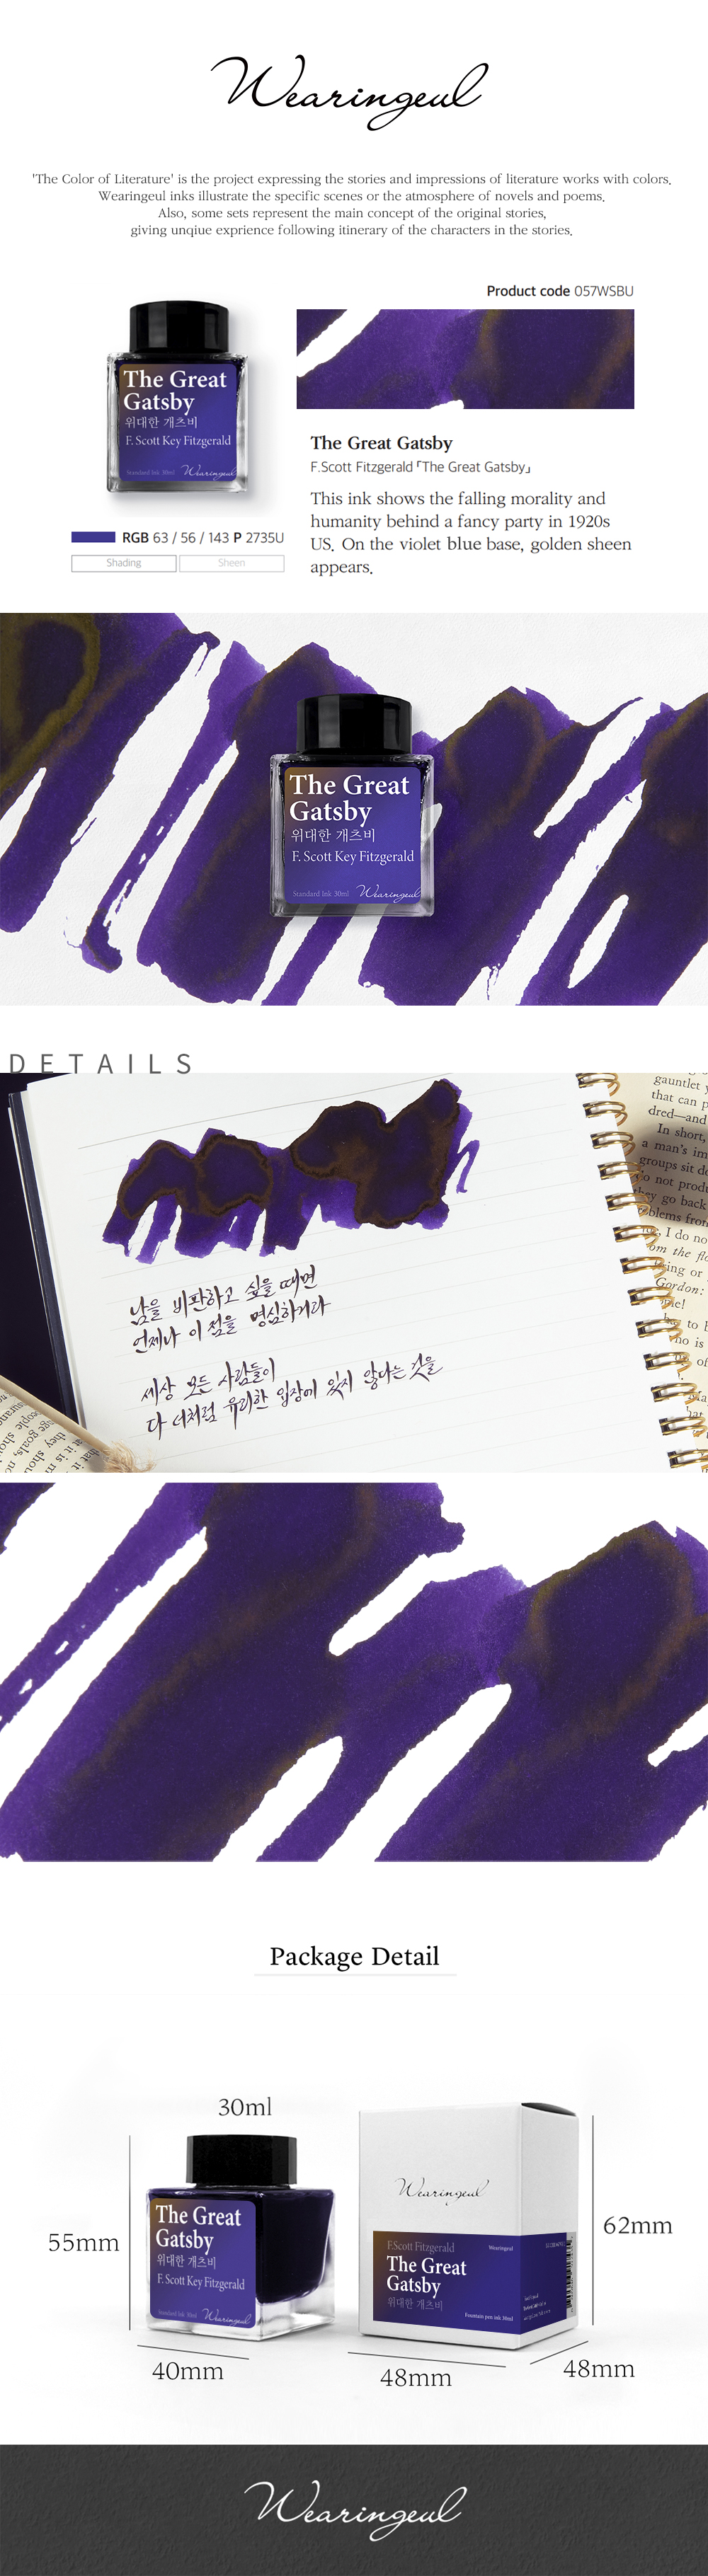 Wearingeul
'The Color of Literature' is the project expressing the stories and impressions of literature works with colors.
Wearingeul inks illustrate the specific scenes or the atmosphere of novels and poems.
Also, some sets represent the main concept of the original stories,
giving unqiue exprience following itinerary of the characters in the stories.
Product code 057WSBU
The Great
Gatsby
위대한 개츠비
F. Scott Key Fitzgerald
Standard Ink 30ml Wearingeul
RGB 63 / 56 / 143 P 2735U
Shading
Sheen
The Great Gatsby
F.Scott Fitzgerald「The Great Gatsby」
This ink shows the falling morality and
humanity behind a fancy party in 1920s
US. On the violet blue base, golden sheen
appears.
The Great
Gatsby
위대한 개츠비
F. Scott Key Fitzgerald
Standard Ink 30ml Wearingeul
DETAILS
남을 비판하고 싶을 때면
언제나 이 점을 명심하여라
세상 모든 사람들이
다 너처럼 유리한 입장에 있지 않다는 것을
gauntlet
that can
dred—and
In short,
a man's im
groups sit
not prod
go back
I do no
om the
Gordon:
to
Package Detail
30ml
55mm
40mm
The Great
Gatsby
위대한 개츠비
F. Scott Key Fitzgerald
Standard Ink 30ml Wearingeul
Wearingeul
F.Scott Fitzgerald
Wearingeul
The Great
Gatsby
위대한 개츠비
Fountain pen ink 30ml
62mm
48mm
48mm
Wearingeul